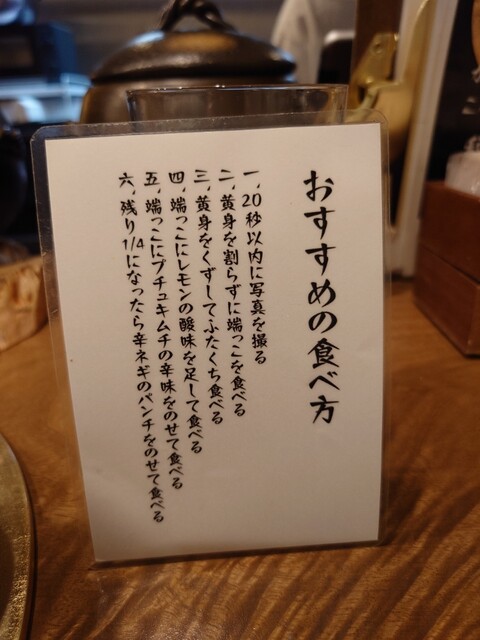 おすすめの食べ方
一、20秒以内に写真を撮る
二、黄身を割らずに端っこを食べる
三、黄身をくずしてふたくち食べる
四、端っこにレモンの酸味を足して食べる
五、端っこにプチュキムチの辛味をのせて食べる
六、残り1/4になったら辛ネギのパンチをのせて食べる